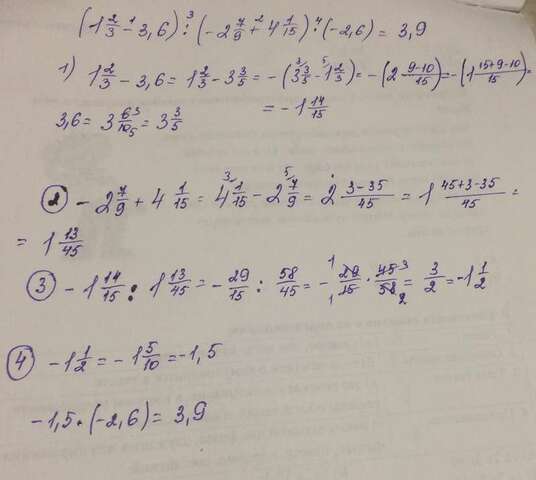 (1 2/3 - 3,6) : (-2 7/9 + 4 1/15) · (-2,6) = 3,9
1) 1 2/3 - 3,6 = 1 2/3 - 3 3/5 = -(3 3/5 - 1 2/3) = -(2 9-10/15) = -(1 15+9-10/15) =
3,6 = 3 6/10 = 3 3/5 = -1 14/15
2 -2 7/9 + 4 1/15 = 4 1/15 - 2 7/9 = 2 3-35/45 = 1 45+3-35/45 =
= 1 13/45
3 -1 14/15 : 1 13/45 = -29/15 : 58/45 = -29/15 · 45/58 = 3/2 = -1 1/2
4 -1 1/2 = -1 5/10 = -1,5
-1,5 · (-2,6) = 3,9